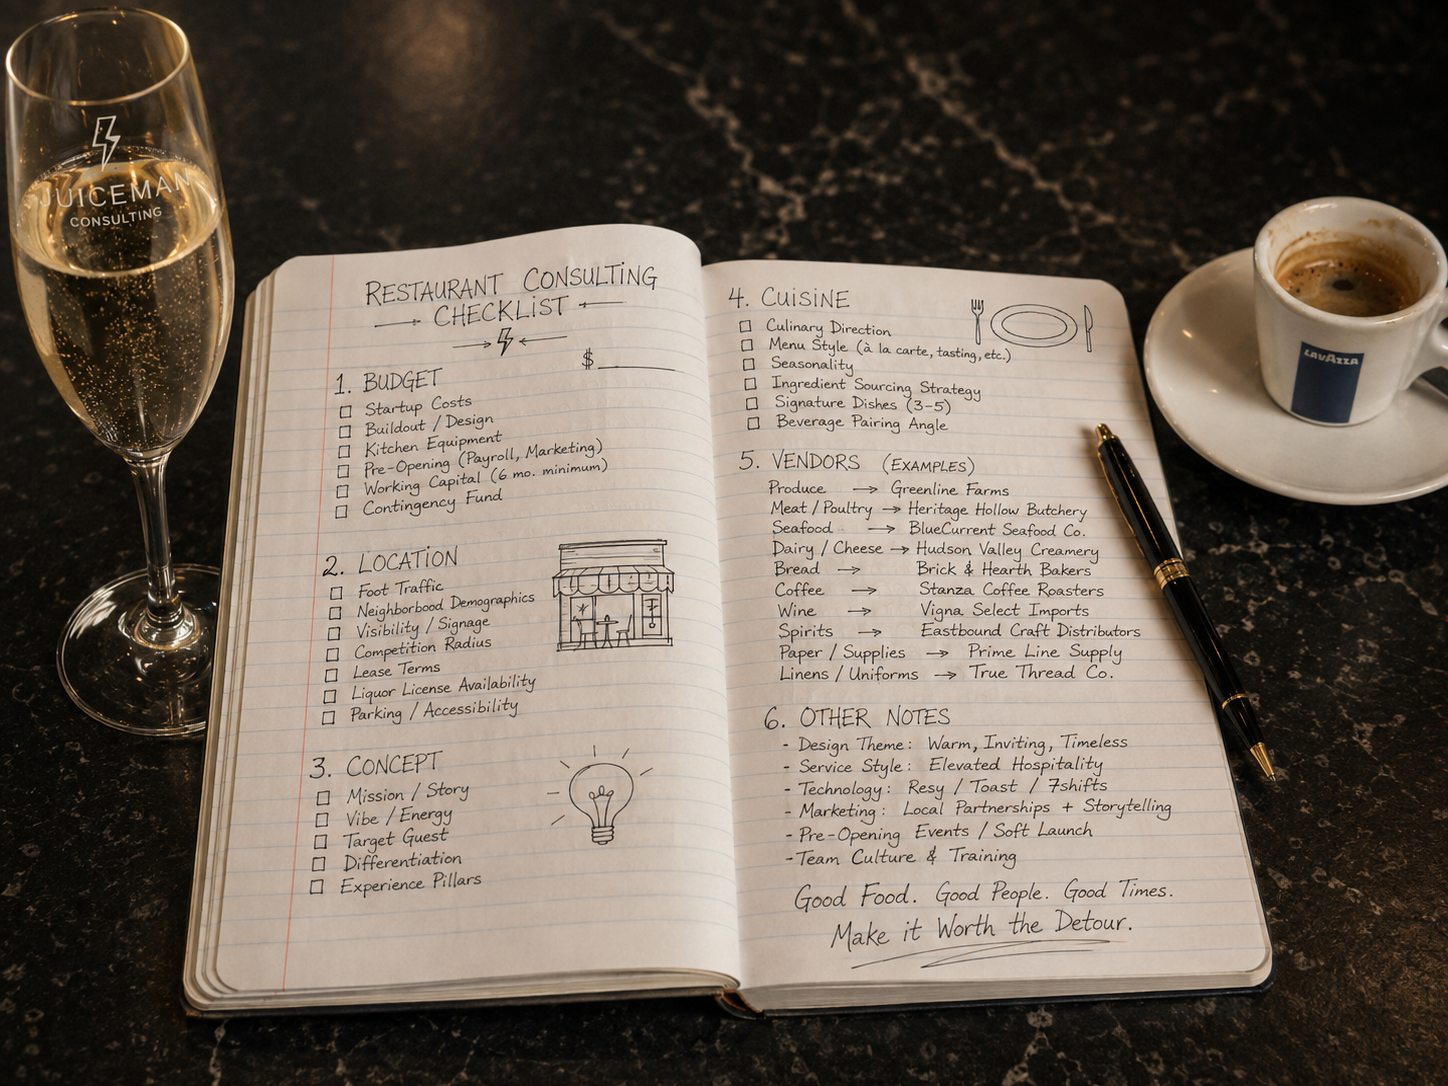 JUICEMAN
CONSULTING
RESTAURANT CONSULTING
CHECKLIST
$
1. BUDGET
Startup Costs
Buildout / Design
Kitchen Equipment
Pre-Opening (Payroll, Marketing)
Working Capital (6 mo. minimum)
Contingency Fund
2. LOCATION
Foot Traffic
Neighborhood Demographics
Visibility / Signage
Competition Radius
Lease Terms
Liquor License Availability
Parking / Accessibility
3. CONCEPT
Mission / Story
Vibe / Energy
Target Guest
Differentiation
Experience Pillars
4. CUISINE
Culinary Direction
Menu Style (à la carte, tasting, etc.)
Seasonality
Ingredient Sourcing Strategy
Signature Dishes (3-5)
Beverage Pairing Angle
5. VENDORS (EXAMPLES)
Produce → Greenline Farms
Meat / Poultry → Heritage Hollow Butchery
Seafood → BlueCurrent Seafood Co.
Dairy / Cheese → Hudson Valley Creamery
Bread → Brick & Hearth Bakers
Coffee → Stanza Coffee Roasters
Wine → Vigna Select Imports
Spirits → Eastbound Craft Distributors
Paper / Supplies → Prime Line Supply
Linens / Uniforms → True Thread Co.
6. OTHER NOTES
- Design Theme: Warm, Inviting, Timeless
- Service Style: Elevated Hospitality
- Technology: Resy / Toast / 7shifts
- Marketing: Local Partnerships + Storytelling
- Pre-Opening Events / Soft Launch
- Team Culture & Training
Good Food. Good People. Good Times.
Make it Worth the Detour.
LAVAZZA